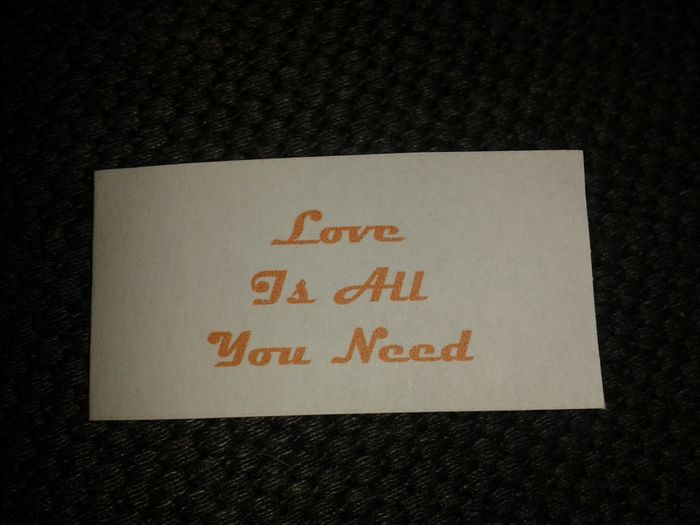 Love
Is All
You Need